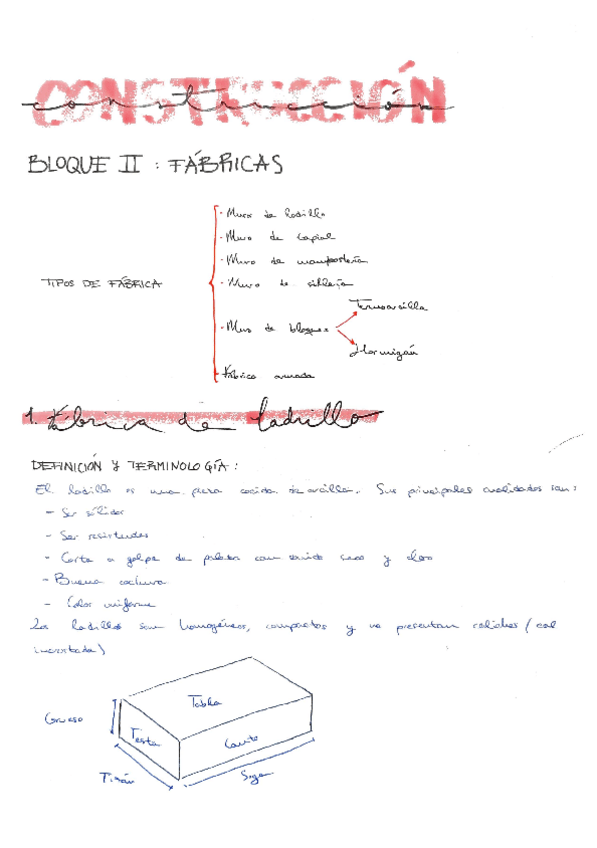 CONSTRUCCIÓN
construcción
BLOQUE II : FÁBRICAS
TIPOS DE FÁBRICA
· Muro de ladrillo
· Muro de tapial
· Muro de mampostería
· Muro de sillería
· Muro de bloques
Termoarcilla
Hormigón
· Fábrica armada
1. Fábrica de ladrillo
DEFINICIÓN Y TERMINOLOGÍA :
El ladrillo es una pieza cocida de arcilla. Sus principales cualidades son:
- Ser sólidos
- Ser resistentes
- Corte a golpe de paleta con sonido seco y claro
- Buena cochura
- Color uniforme
Los ladrillos son homogéneos, compactos y no presentan caliches (cal
incrustada)
Tabla
Grueso
Testa
Canto
Tizón
Soga